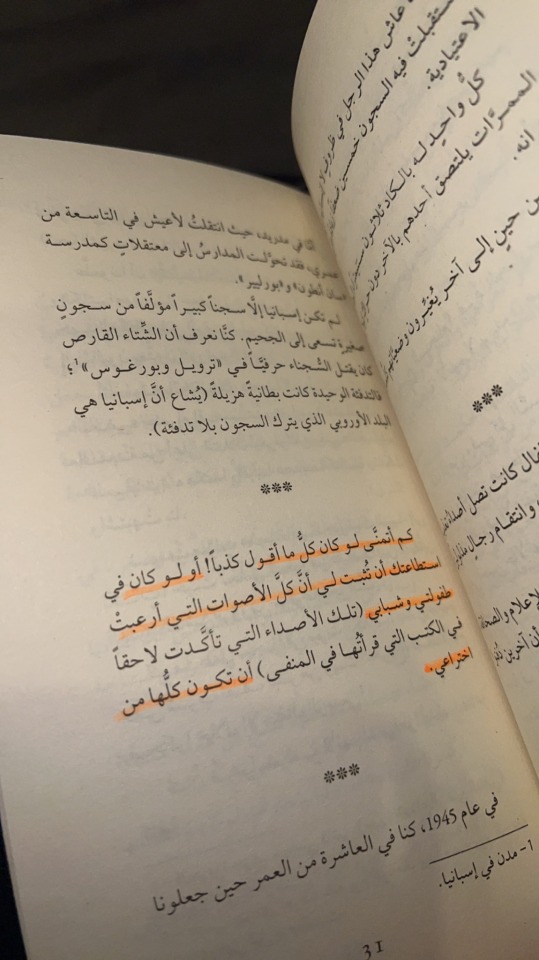 عاش هذا الرجل في
ستقبلتْ فيه السجون خمسين
الاعتيادية.
كلُّ واحدٍ له بالكاد ثلاثون
الممرَّات يلتصق أحدهم بالآخر دون
انه.
حينٍ إلى آخر يُغيِّرون
***
كانت تصل
وانتقام رجالٍ
الإعلام والصحافة
أن آخرين
أنا في مدريد، حيث انتقلتُ لأعيش في التاسعة من
عمري، فقد تحوَّلت المدارسُ إلى معتقلاتٍ كمدرسة
«سان أنطون» و«بورليير».
لم تكن إسبانيا إلَّا سجناً كبيراً مؤلَّفاً من سجونٍ
صغيرةٍ تسعى إلى الجحيم. كنَّا نعرف أن الشِّتاء القارص
كان يقتل السُّجناء حرفيَّاً في «ترويل وبورغوس»١؛
فالتدفئة الوحيدة كانت بطانيةً هزيلةً (يُشاع أنَّ إسبانيا هي
البلد الأوروبي الذي يترك السجون بلا تدفئة).
***
كم أتمنَّى لو كان كلُّ ما أقول كذباً! أو لو كان في
استطاعتك أن تُثبت لي أنَّ كلَّ الأصوات التي أرعبتْ
طفولتي وشبابي (تلك الأصداء التي تأكَّدت لاحقاً
في الكتب التي قرأتُها في المنفى) أن تكون كلُّها من
اختراعي.
***
في عام 1945، كنا في العاشرة من العمر حين جعلونا
1- مدن في إسبانيا.
31